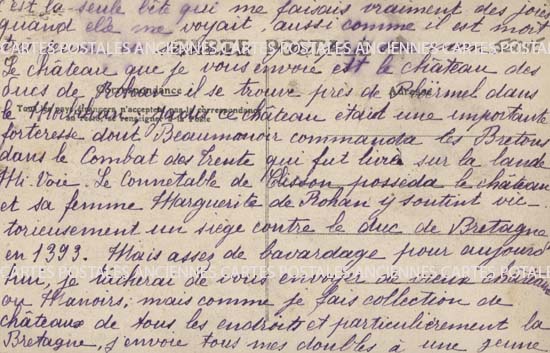 c'est la seule bête qui me faisais vraiment des joies
quand elle me voyait, aussi comme il est mort
CARTE POSTALE
Le château que je vous envoie est le château des
Correspondance
Adresse
ducs de il se trouve près de Ploërmel dans
Tous les pays étrangers n'acceptent pas la correspondance
au recto, se renseigner à la poste
le Morbihan ce château était une importante
forteresse dont Beaumanoir commanda les Bretons
dans le Combat des Trente qui fut livré sur la lande
Mi-Voie. Le Connetable de Clisson posséda le château
et sa femme Marguerite de Rohan y soutint vic-
torieusement un siege contre le duc de Bretagne
en 1393. Mais assez de bavardage pour aujourd
CARTES POSTALES ANCIENNES CARTES POSTALES ANCIENNES CARTES POSTALES
hui, je tâcherai de vous envoyer de vieux châteaux
ou Manoirs; mais comme je fais collection de
châteaux de tous les endroits et particulièrement la
Bretagne, j'envoie tous mes doubles à une jeune